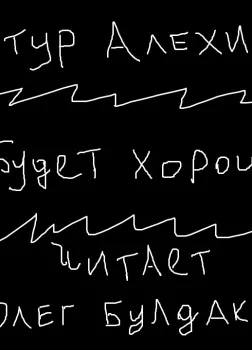 ТУР АЛЕХИ
БУДЕТ ХОРОШ
ЧИТАЕТ
ОЛЕГ БУЛДАК